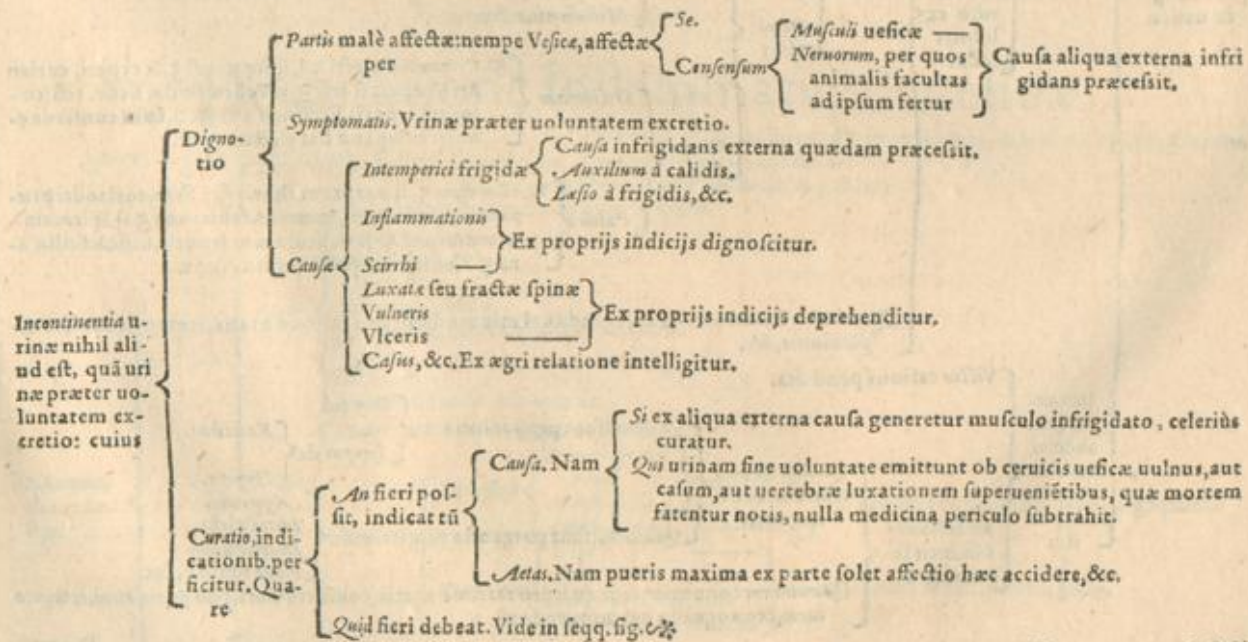 Se.
Partis malè affectæ: nempe Vesicæ, affectæ
per
Consensum
Musculi uesicæ —
Neruorum, per quos
animalis facultas
ad ipsum fertur
Causa aliqua externa infri
gidans præcessit.
Digno-
tio
Symptomatis. Vrinæ præter uoluntatem excretio.
Intemperiei frigidæ
Causa infrigidans externa quædam præcessit.
Auxilium à calidis.
Læsio à frigidis, &c.
Causæ
Inflammationis
Scirrhi —
Ex proprijs indicijs dignoscitur.
Luxatæ seu fractæ spinæ
Vulneris
Vlceris —
Ex proprijs indicijs deprehenditur.
Casus, &c. Ex ægri relatione intelligitur.
Incontinentia u-
rinæ nihil ali-
ud est, quã uri
næ præter uo-
luntatem ex-
cretio: cuius
Curatio, indi-
cationib. per
ficitur. Qua-
re
An fieri pos-
sit, indicat tũ
Causa. Nam
Si ex aliqua externa causa generetur musculo infrigidato, celeriùs
curatur.
Qui urinam sine uoluntate emittunt ob ceruicis uesicæ uulnus, aut
casum, aut uertebræ luxationem superueniẽtibus, quæ mortem
fatentur notis, nulla medicina periculo subtrahit.
Aetas. Nam pueris maxima ex parte solet affectio hæc accidere, &c.
Quid fieri debeat. Vide in seqq. sig.